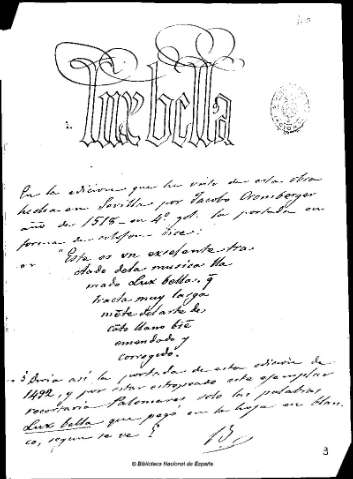 Lux bella
En la edicion que he visto de esta obra
hecha en Sevilla por Jacobo Cromberger
año de 1518 - en 4º gót. la portada en
forma de dice:
"Este es un excelente tra
tado dela musica lla
mado Lux bella. q̃
tracta muy larga
mẽte del arte de
cãto llano biẽ
emendado y
corregido.
Diria asi la portada de esta edicion de
1492, y por estar estropeado este ejemplar
recortaria Palomares solo las palabras
Lux bella que pegó en la hoja en blan
co, segun se ve
B
3
© Biblioteca Nacional de España